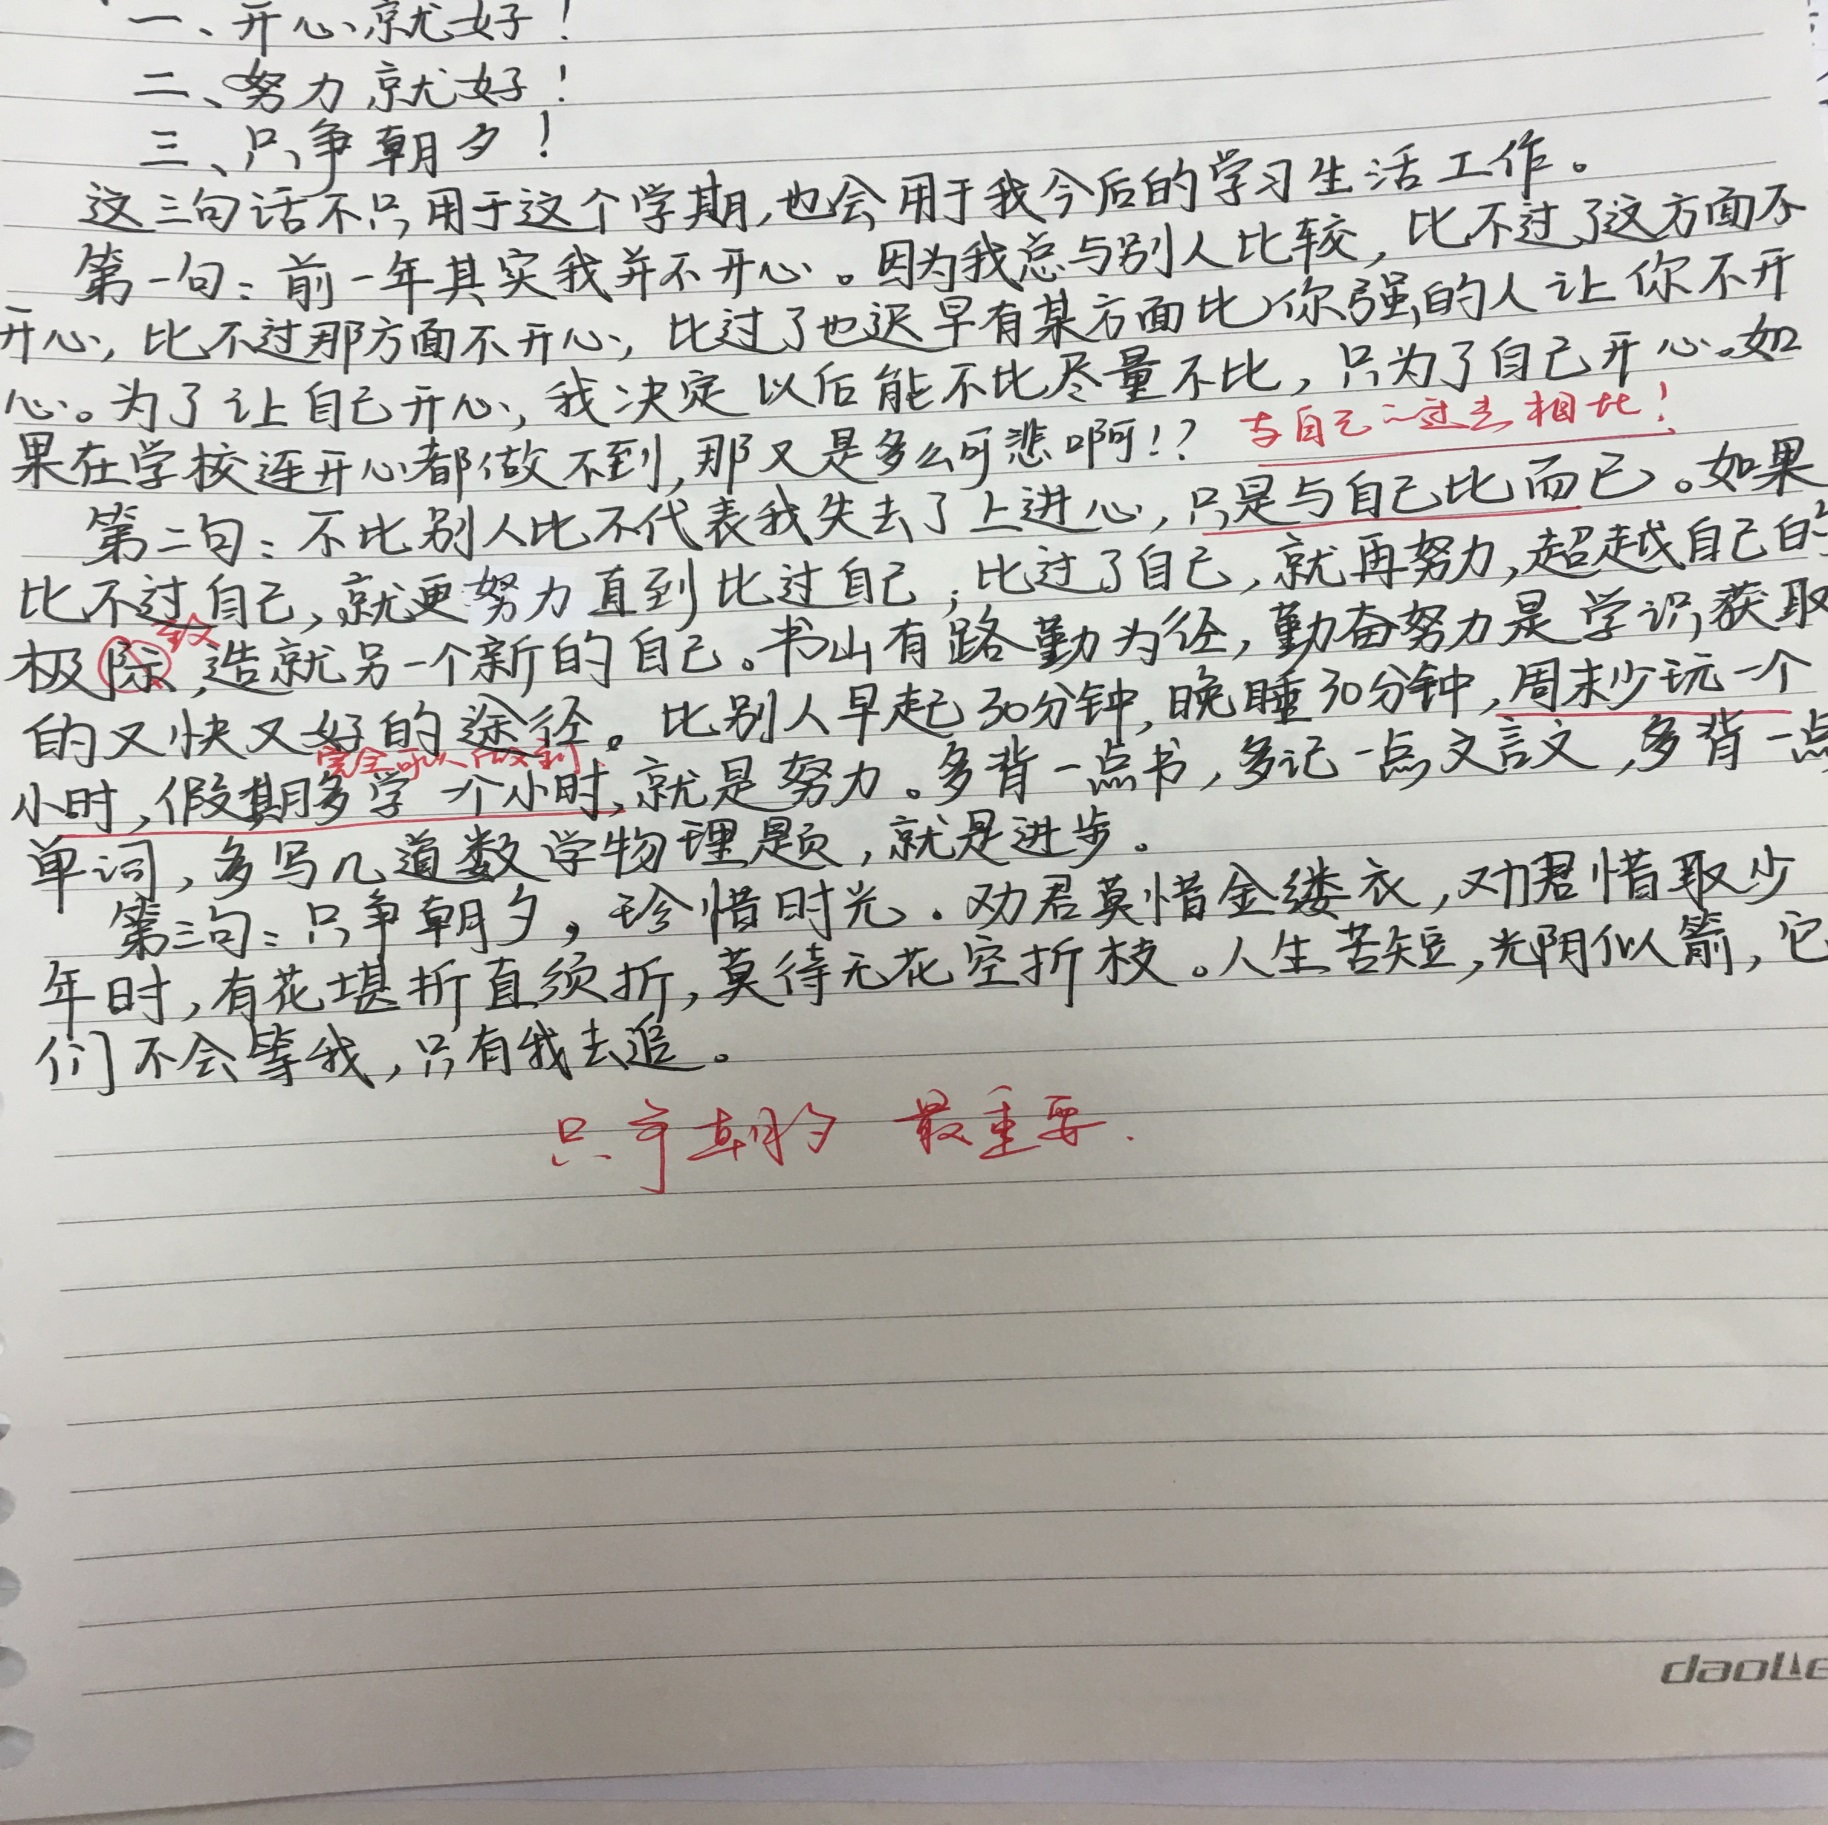 一、开心就好！
二、努力就好！
三、只争朝夕！
这三句话不只用于这个学期,也会用于我今后的学习生活工作。
第一句：前一年其实我并不开心。因为我总与别人比较，比不过了这方面不
开心，比不过那方面不开心，比过了也迟早有某方面比你强的人让你不开
心。为了让自己开心，我决定以后能不比尽量不比，只为了自己开心。如
果在学校连开心都做不到,那又是多么可悲啊!？
与自己过去相比！
第二句：不比别人比不代表我失去了上进心，只是与自己比而已。如果
比不过自己，就更努力直到比过自己；比过了自己，就再努力,超越自己的
致
极际,造就另一个新的自己。书山有路勤为径，勤奋努力是学识获取
的又快又好的途径。比别人早起30分钟,晚睡30分钟,周末少玩一个
完全可以做到
小时,假期多学一个小时,就是努力。多背一点书，多记一点文言文，多背一点
单词，多写几道数学物理题，就是进步。
第三句：只争朝夕，珍惜时光。劝君莫惜金缕衣，劝君惜取少
年时，有花堪折直须折，莫待无花空折枝。人生苦短，光阴似箭，它
们不会等我，只有我去追。
只争朝夕 最重要.